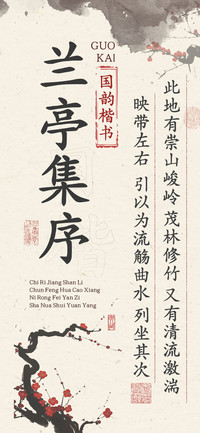 GUO
KAI
国韵楷书
兰亭集序
此地有崇山峻岭 茂林修竹 又有清流激湍
映带左右 引以为流觞曲水 列坐其次
Chi Ri Jiang Shan Li
Chun Feng Hua Cao Xiang
Ni Rong Fei Yan Zi
Sha Nua Shui Yuan Yang